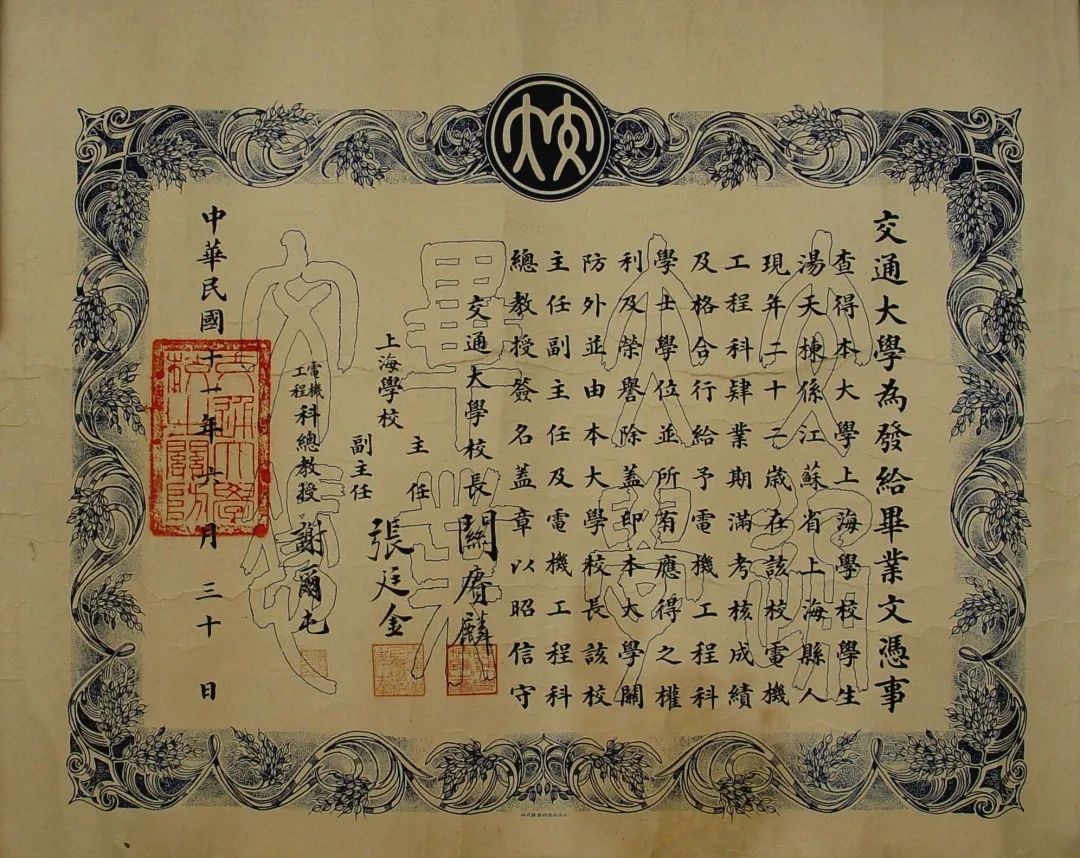 交通大學為發給畢業文憑事
查得本大學上海學校學生
湯天棟係江蘇省上海縣人
現年二十二歲在該校電機
工程科肄業期滿考核成績
及格合行給予電機工程科
學士學位並所有應得之權
利及榮譽除蓋印本大學關
防外並由本大學校長該校
主任副主任及電機工程科
總教授簽名蓋章以昭信守
交通大學校長 關賡麟
上海學校 主任 張廷金
副主任
電機工程科總教授 謝爾屯
中華民國十一年六月三十日
交通大學校之關防
交大畢業文憑